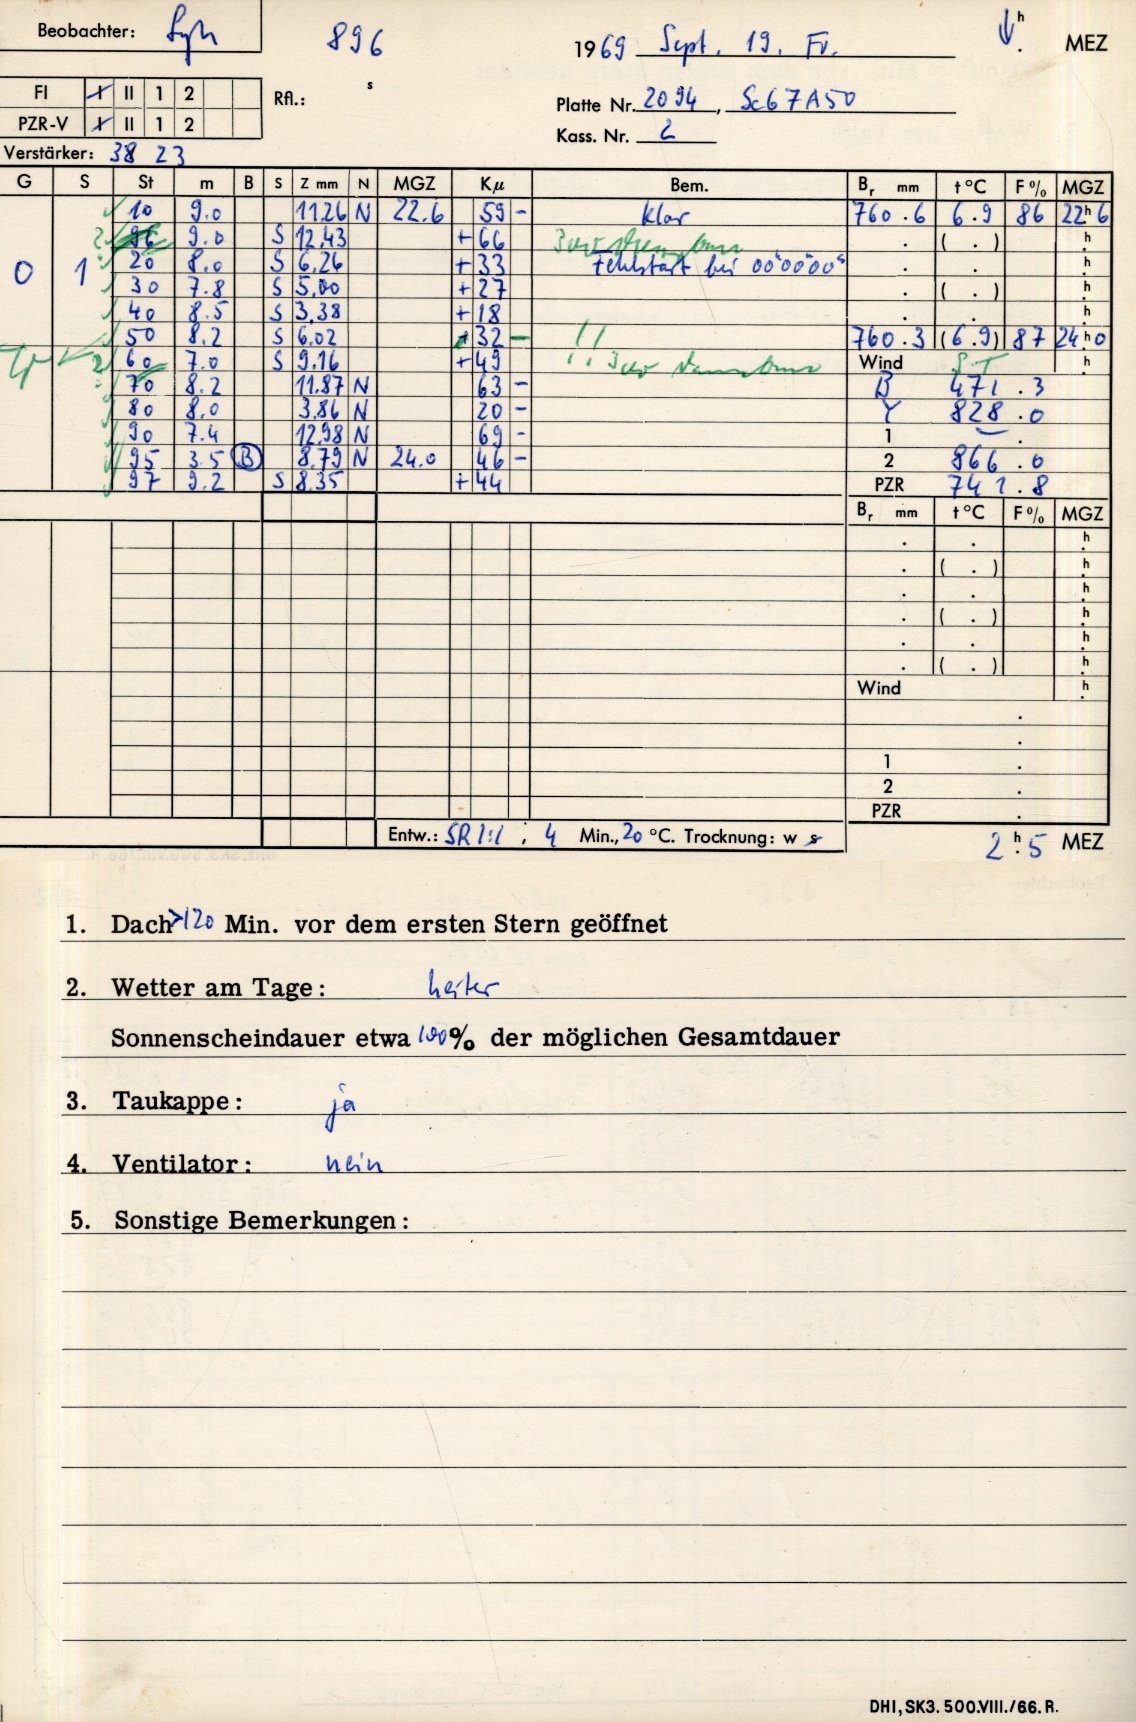 Beobachter:
896
1969 Sept. 19. Fr.
h . MEZ
FI I II 1 2
Rfl.: s
Platte Nr. 2094, Sc67A50
PZR-V I II 1 2
Kass. Nr. 2
Verstärker: 38 23
G S St m B S Z mm N MGZ Kμ Bem. Br mm t °C F % MGZ
10 9.0 11.26 N 22.6 59 - klar 760.6 6.9 86 22h6
96 9.0 S 12.43 + 66 . ( . ) h
0 1 20 8.0 S 6.26 + 33 Fehlstart bei 00h00m00s . . h
30 7.8 S 5.00 + 27 . ( . ) h
40 8.5 S 3.38 + 18 . . h
50 8.2 S 6.02 + 32 - !! 760.3 (6.9) 87 24h0
60 7.0 S 9.16 + 49 !! Wind ST h
70 8.2 11.87 N 63 - B 471.3
80 8.0 3.86 N 20 - Y 828.0
90 7.4 12.98 N 69 - 1 .
95 3.5 B 8.79 N 24.0 46 - 2 866.0
97 9.2 S 8.35 + 44 PZR 741.8
Br mm t °C F % MGZ
. . h
. ( . ) h
. . h
. ( . ) h
. . h
. ( . ) h
Wind h
.
.
1 .
2 .
PZR .
Entw.: SR 1:1 ; 4 Min., 20 °C. Trocknung: w s
2h.5 MEZ
1. Dach >120 Min. vor dem ersten Stern geöffnet
2. Wetter am Tage: heiter
Sonnenscheindauer etwa 100% der möglichen Gesamtdauer
3. Taukappe: ja
4. Ventilator: nein
5. Sonstige Bemerkungen:
DHI, SK3. 500.VIII./66. R.